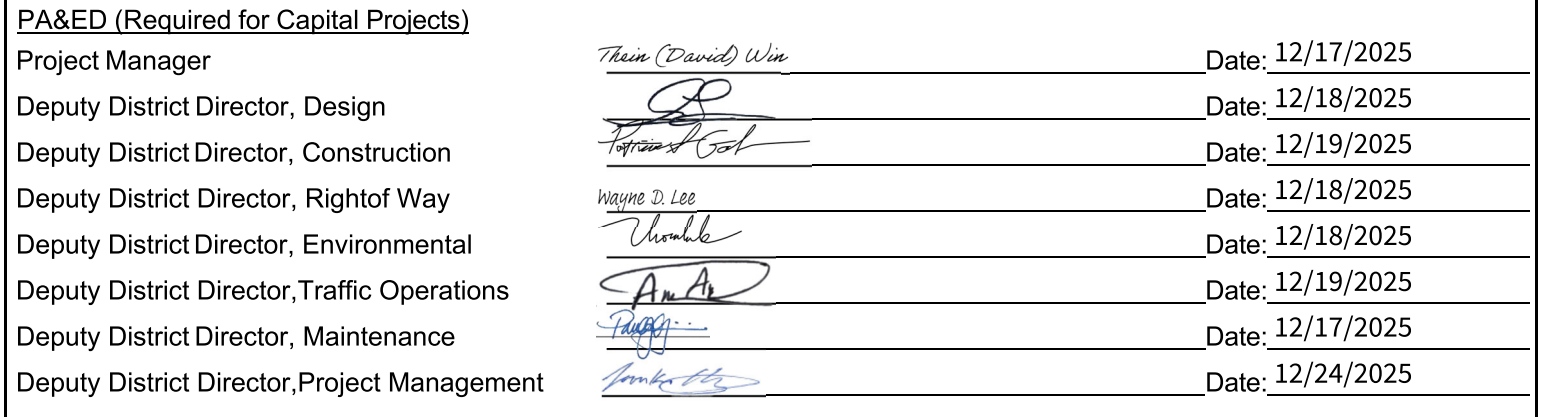 PA&ED (Required for Capital Projects)
Project Manager Thein (David) Win Date: 12/17/2025
Deputy District Director, Design Date: 12/18/2025
Deputy District Director, Construction Date: 12/19/2025
Deputy District Director, Rightof Way Wayne D. Lee Date: 12/18/2025
Deputy District Director, Environmental Date: 12/18/2025
Deputy District Director,Traffic Operations Date: 12/19/2025
Deputy District Director, Maintenance Date: 12/17/2025
Deputy District Director,Project Management Date: 12/24/2025